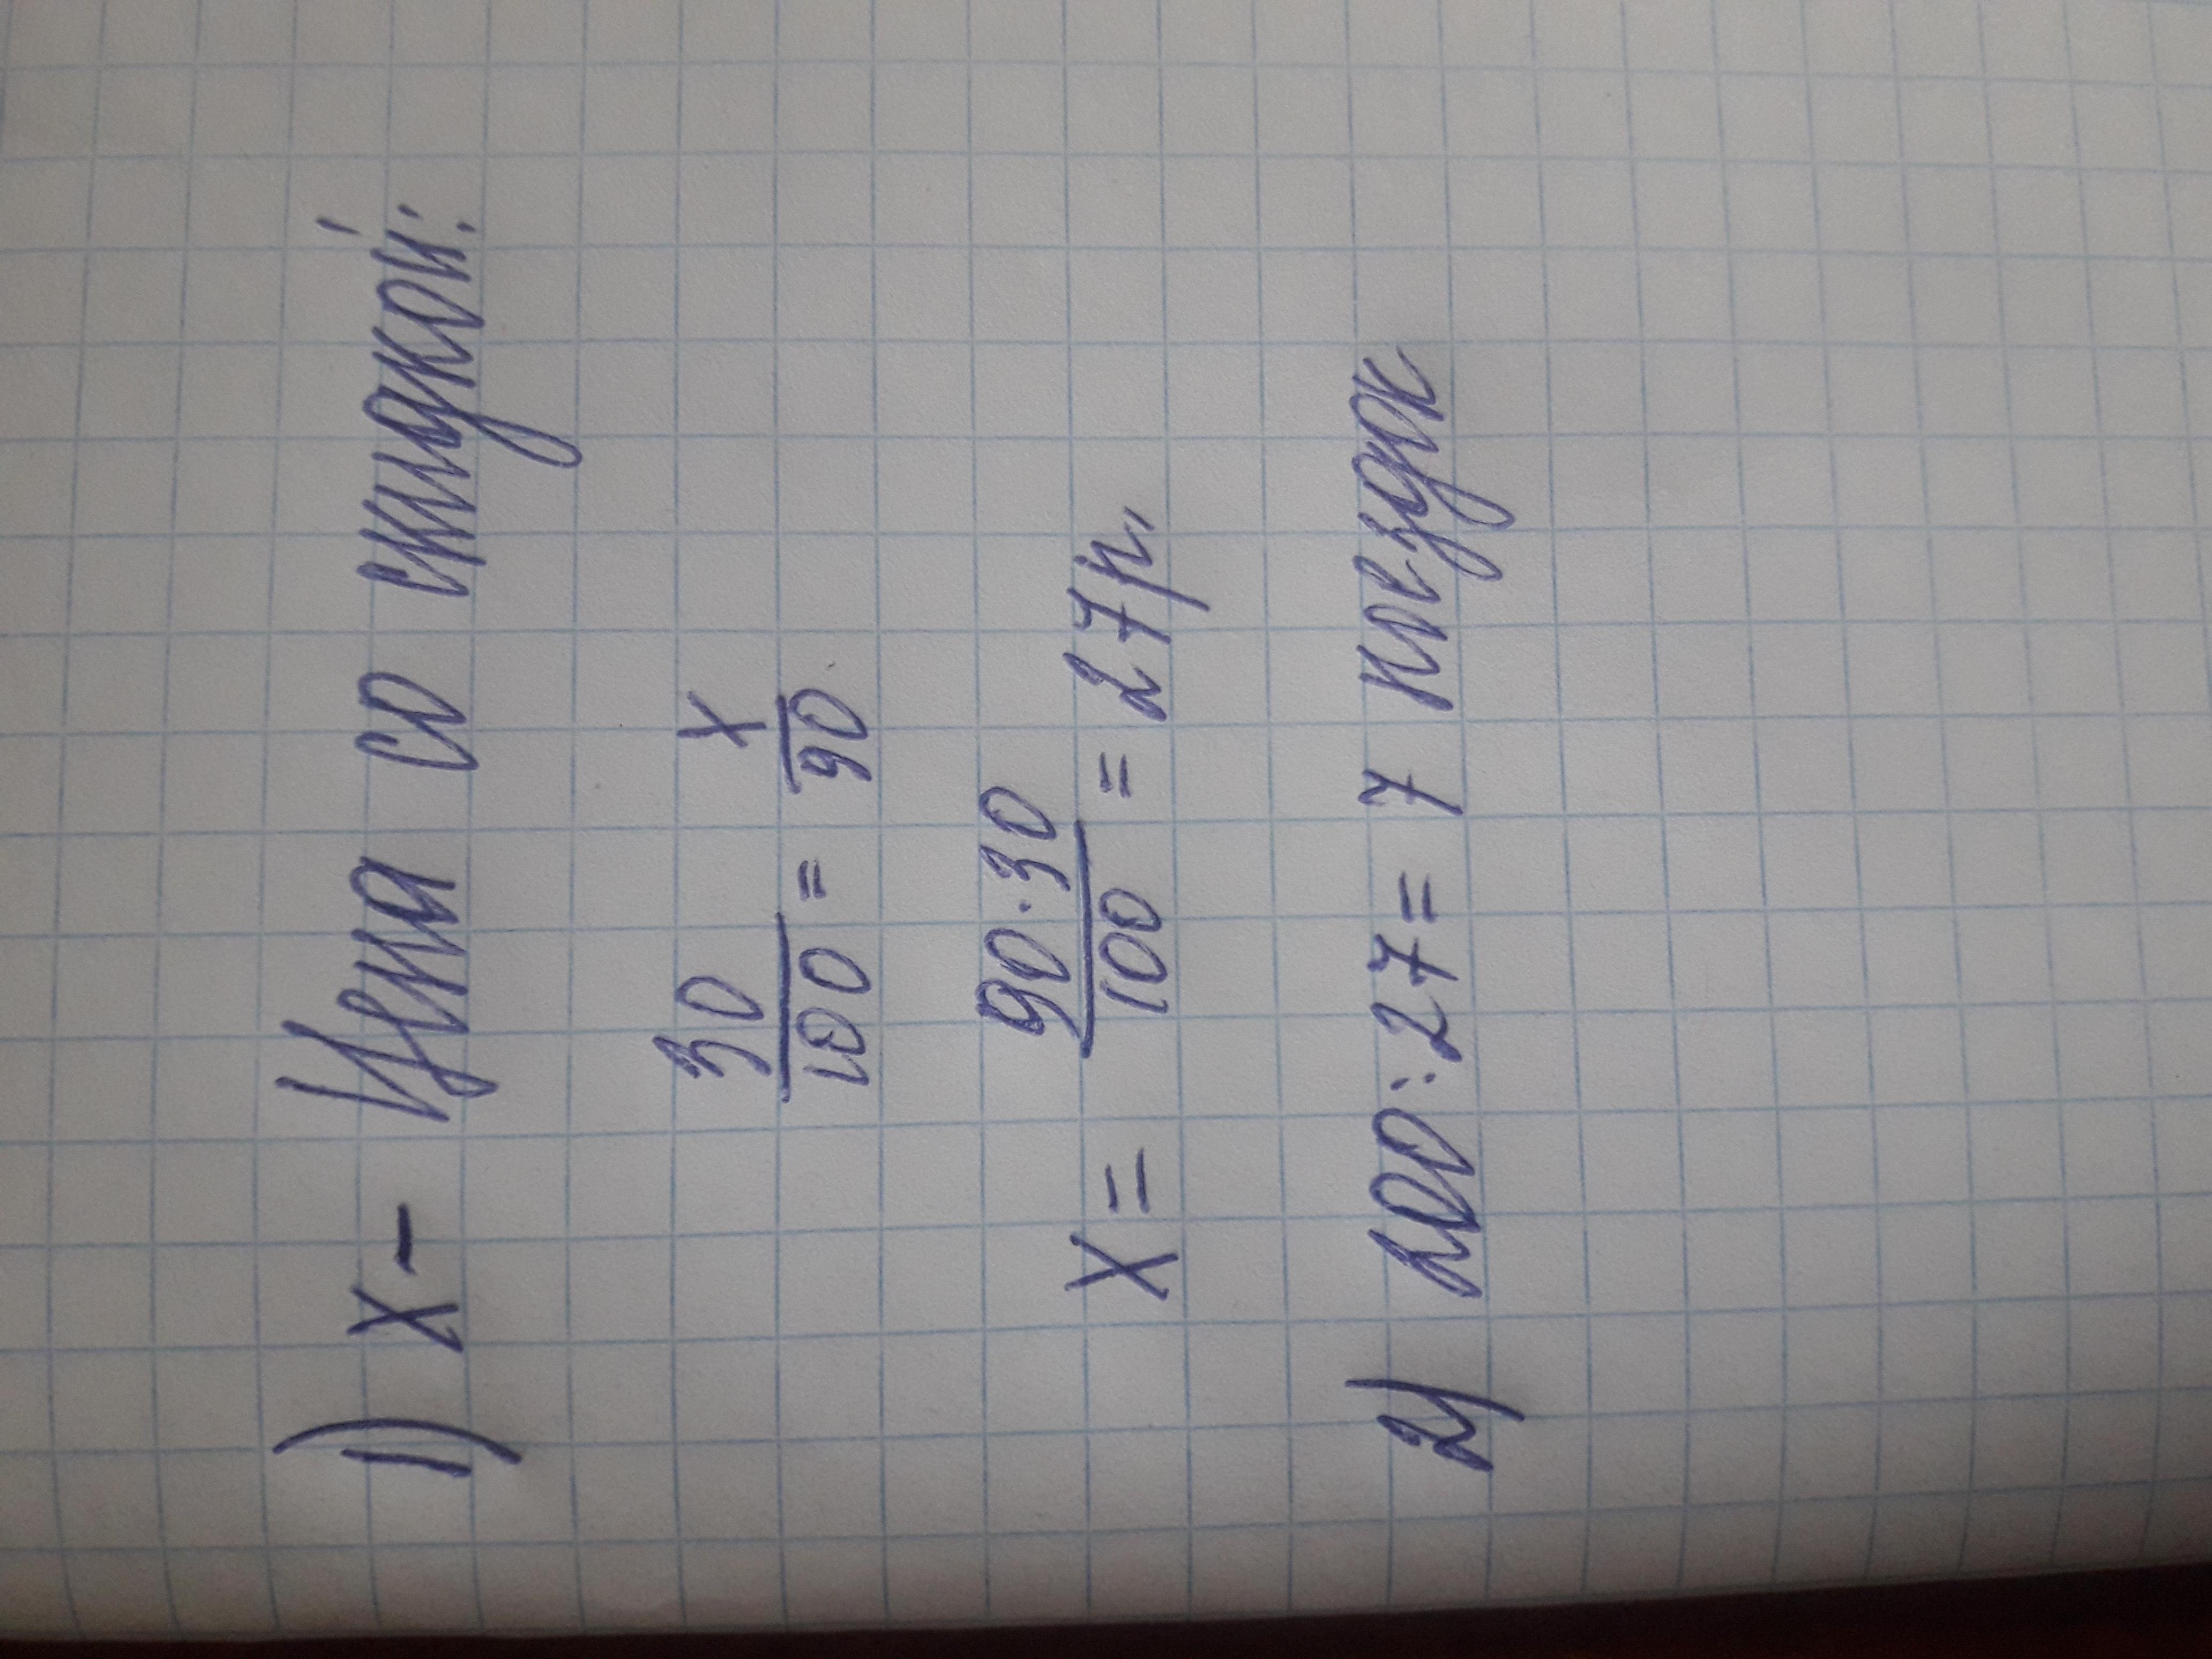 1) x - Цена со скидкой:
30/100 = x/90
x = 90·30/100 = 27р.
2) 200:27 = 7 поездок